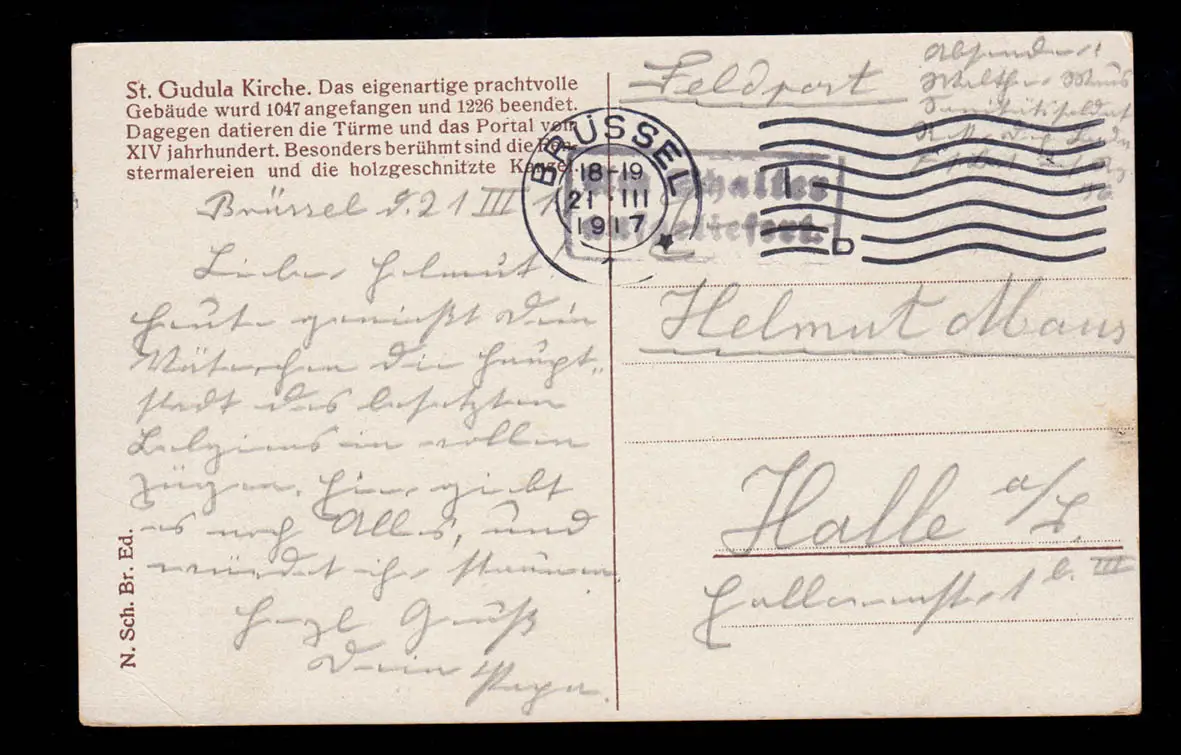 St. Gudula Kirche. Das eigenartige prachtvolle
Gebäude wurd 1047 angefangen und 1226 beendet.
Dagegen datieren die Türme und das Portal vom
XIV jahrhundert. Besonders berühmt sind die Fen-
stermalereien und die holzgeschnitzte Kanzel.
Brüssel d. 21 III 17
Lieber Helmut!
Heute genießt Dein
Väterchen die Haupt-
stadt des besetzten
Belgiens in vollen
Zügen. Hier giebt
es noch Alles, und
würdet ihr staunen
Herzl Gruß
Dein Papa.
N. Sch. Br. Ed.
Feldpost
Absender:
Walther Maus
BRÜSSEL
18-19
21 III
1917
1
Schalter
eliefert.
D
Helmut Maus
Halle a/S.
1 b. III